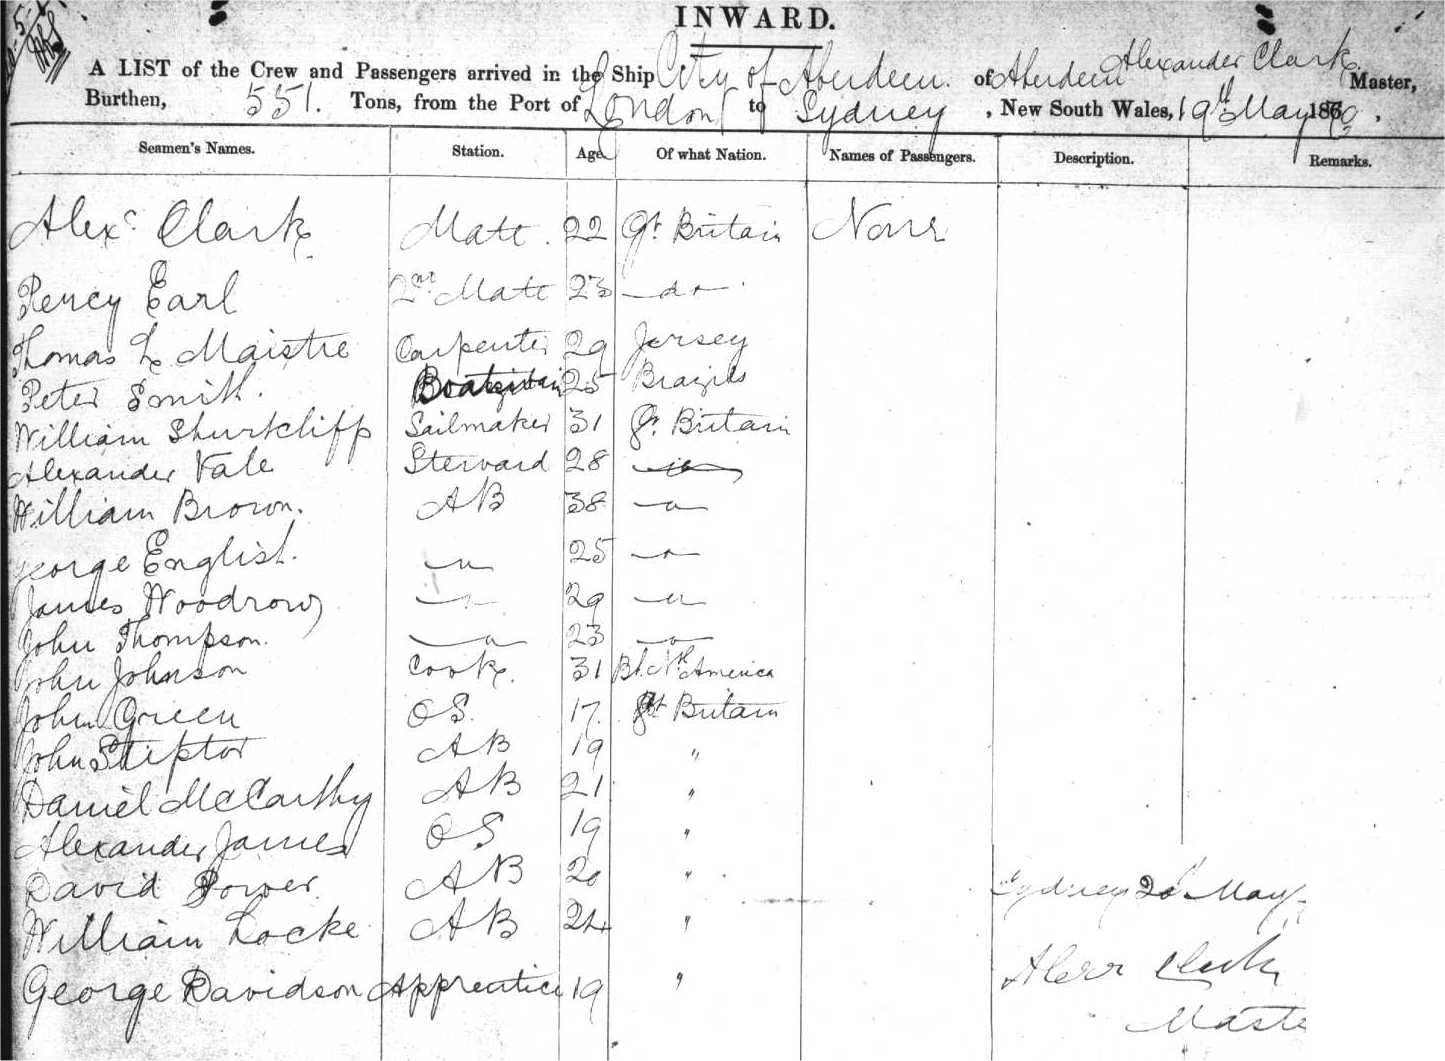 INWARD.
A LIST of the Crew and Passengers arrived in the Ship City of Aberdeen. of Aberdeen Alexander Clark Master,
Burthen, 551. Tons, from the Port of London to Sydney, New South Wales, 19th May 1870,
Seamen's Names. Station. Age Of what Nation. Names of Passengers. Description. Remarks.
Alexr Clark Mate. 22 Gt Britain None
Percy Earl 2nd Mate 23 do
Thomas Le Maistre Carpenter 29 Jersey
Peter Smith. Boatswain 25 Brazils
William Shurtcliff Sailmaker 31 Gt Britain
Alexander Vale Steward 28
William Brown. AB 38 — " —
George English. — " — 25 — " —
James Woodrow — " — 29 — " —
John Thompson. — " — 23 — " —
John Johnson Cook. 31 Bt. Nth America
John Green OS. 17. Gt Britain
John AB 19 "
Daniel McCarthy AB 21 "
Alexander James OS 19 "
David Power AB 20 "
Sydney 20 May
William Locke AB 24 "
Alexr Clark
George Davidson Apprentice 19 "
Master